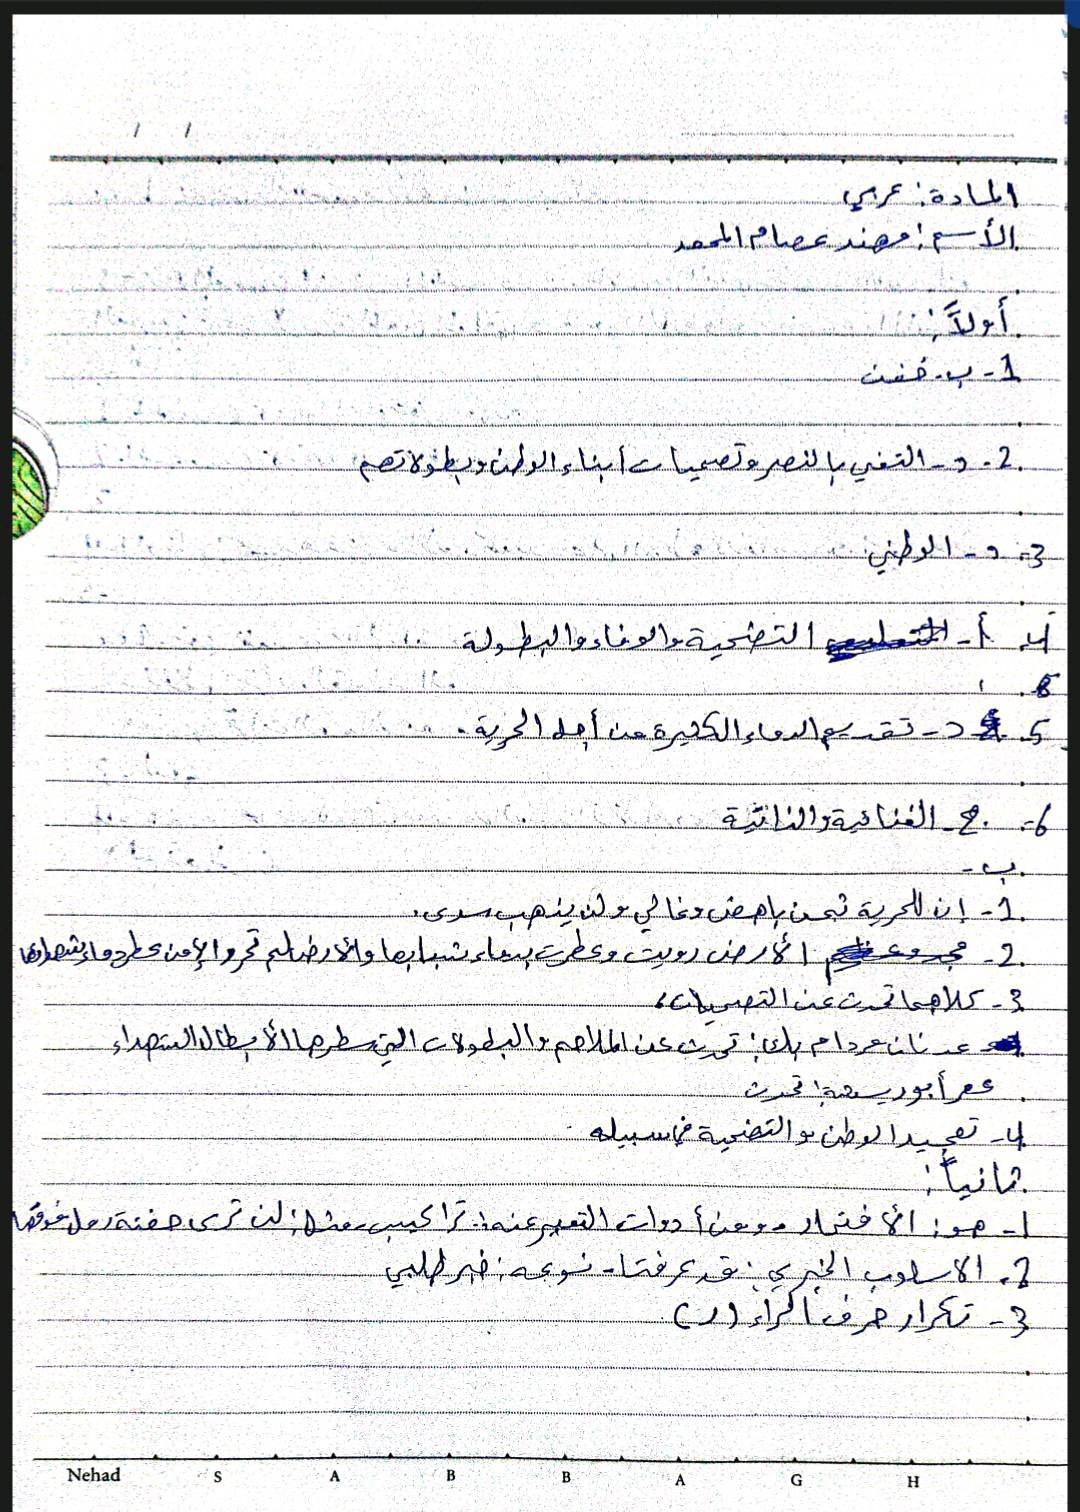 المادة: عربي
الأسم: مهند عصام المحمد
أولاً:
1- ب- خفت
2- د- التغني بالنصر وتضحيات أبناء الوطن وبطولاتهم
3- د- الوطني
4- أ- التضحية والوفاء والبطولة
5- د- تقديم الدماء الكثيرة من أجل الحرية.
6- ج- الغنائية والذاتية
ب-
1- إن للحرية ثمن باهض وغالي ولن يذهب سدى.
2- الأرض رويت وعطرت بدماء شبابها والأرض لم تحرر إلا من عطر دماء شهدائها
3- كلاهما تحدث عن التضحيات
عدنان مردام بك: تحدث عن الملاحم والبطولات التي سطرها الأبطال الشهداء
عمر أبو ريشة: تحدث
4- تمجيد الوطن والتضحية في سبيله
ثانياً:
1- هو: الأفتخار ومن أدوات التعبير عنه: تراكيب مثل: لن ترى حفنة رمل فوقها
2. الاسلوب الخبري: قد عرفتا- نوعه: خبر طلبي
3- تكرار حرف الراء (ر)
Nehad S A B B A G H